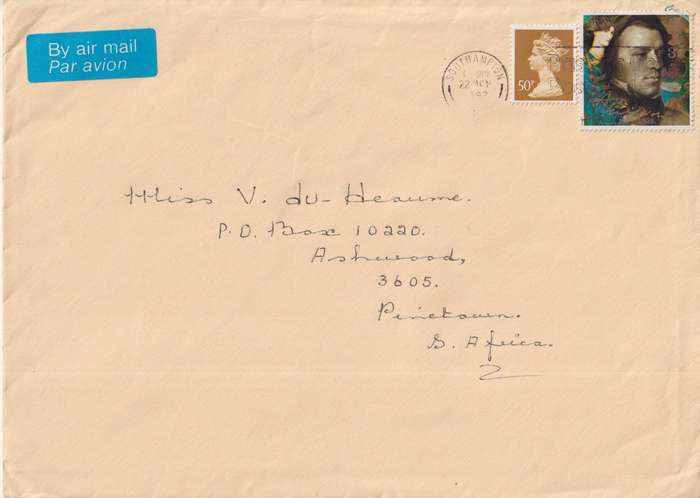 By air mail
Par avion
SOUTHAMPTON
50P
Miss V. du-Heaume.
P.O. Box 10220.
Ashwood,
3605.
Pinetown.
S. Africa.